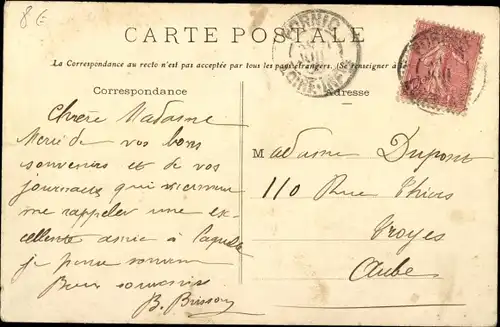 8€
CARTE POSTALE
La Correspondance au recto n'est pas acceptée par tous les pays étrangers. (Se renseigner à la
PORNIC
LOIRE-INFRE
Correspondance
Adresse
Chère Madame
Merci de vos bons
souvenirs et de vos
journaux qui viennent
me rappeler une ex-
cellente amie à laquelle
je pense souvent
Bons souvenirs
B. Brisson
Madame Dupont
110 Rue Thiers
Troyes
Aube